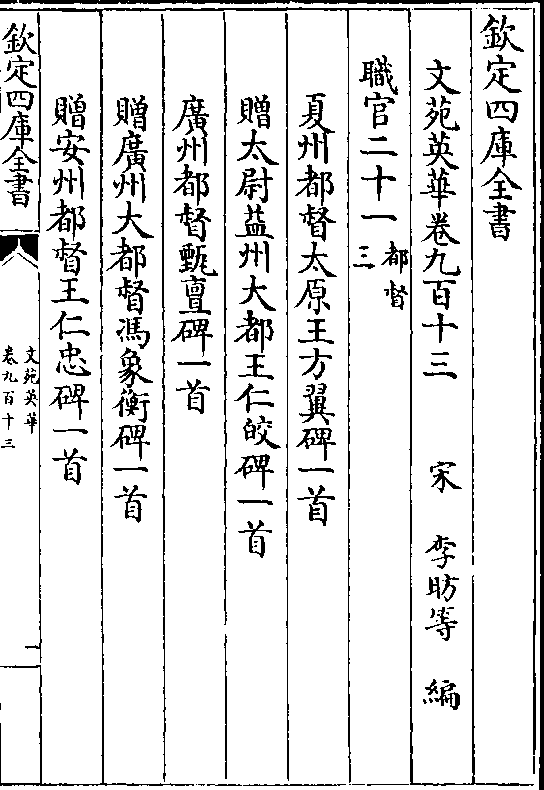 欽定四庫全書
文苑英華卷九百十三 宋 李昉等 編
職官二十一 都督三
夏州都督太原王方翼碑一首
贈太尉益州大都王仁皎碑一首
廣州都督甄亶碑一首
贈廣州大都督馮象衡碑一首
贈安州都督王仁忠碑一首
欽定四庫全書
文苑英華
卷九百十三
一